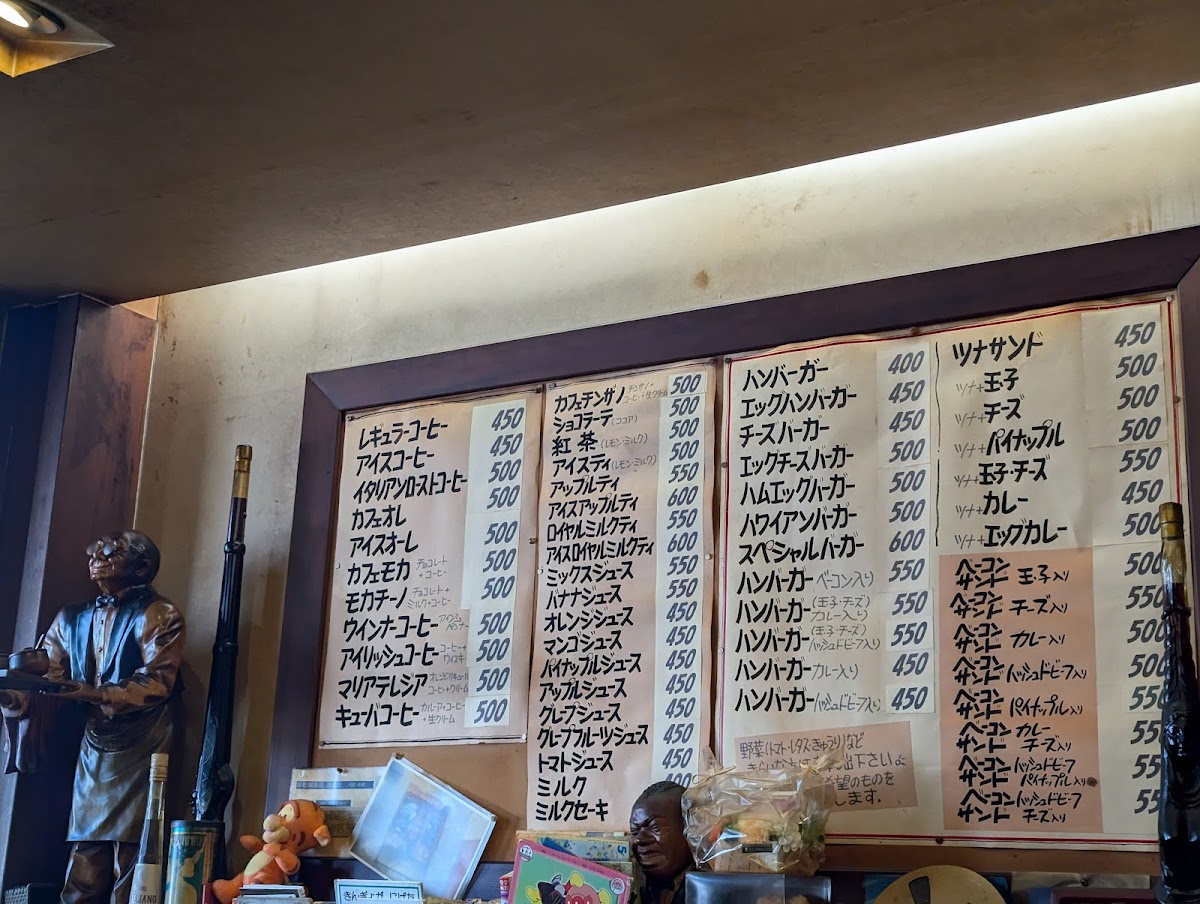 レギュラーコーヒー 450
アイスコーヒー 450
イタリアンローストコーヒー 500
カフェオレ 500
アイスオーレ 500
カフェモカ チョコレート+コーヒー 500
モカチーノ チョコレート+ミルク+コーヒー 500
ウインナーコーヒー 500
アイリッシュコーヒー コーヒー+ウイスキー 500
マリアテレジア オレンジリキュール コーヒー+クリーム 500
キューバコーヒー カルーア+コーヒー+生クリーム 500
カフェチンザノ チンザノ+コーヒー+生クリーム 500
ショコラーテ(ココア) 500
紅茶(レモン・ミルク) 500
アイスティ(レモン・ミルク) 500
アップルティ 550
アイスアップルティ 600
ロイヤルミルクティ 550
アイスロイヤルミルクティ 600
ミックスジュース 550
バナナジュース 550
オレンジジュース 450
マンゴジュース 450
パイナップルジュース 450
アップルジュース 450
グレープジュース 450
グレープフルーツジュース 450
トマトジュース 450
ミルク 400
ミルクセーキ
ハンバーガー 400
エッグハンバーガー 450
チースバーガー 450
エッグチーズバーガー 500
ハムエッグバーガー 500
ハワイアンバーガー 500
スペシャルバーガー 600
ハンバーガー ベーコン入り 550
ハンバーガー (玉子・チーズ)カレー入り 550
ハンバーガー (玉子・チーズ)ハッシュドビーフ入り 550
ハンバーガー カレー入り 450
ハンバーガー ハッシュドビーフ入り 450
野菜(トマト・レタス・きゅうり)など
出下さいよ
希望のものを
します.
ツナサンド 450
ツナ+玉子 500
ツナ+チーズ 500
ツナ+パイナップル 500
ツナ+玉子・チーズ 550
ツナ+カレー 450
ツナ+エッグカレー 500
ベーコンサンド 玉子入り 500
ベーコンサンド チーズ入り 550
ベーコンサンド カレー入り 500
ベーコンサンド ハッシュドビーフ入り 500
ベーコンサンド パイナップル入り 550
ベーコンサンド カレーチーズ入り 55
ベーコンサンド ハッシュドビーフパイナップル入り 55
ベーコンサンド ハッシュドビーフチーズ入り 55